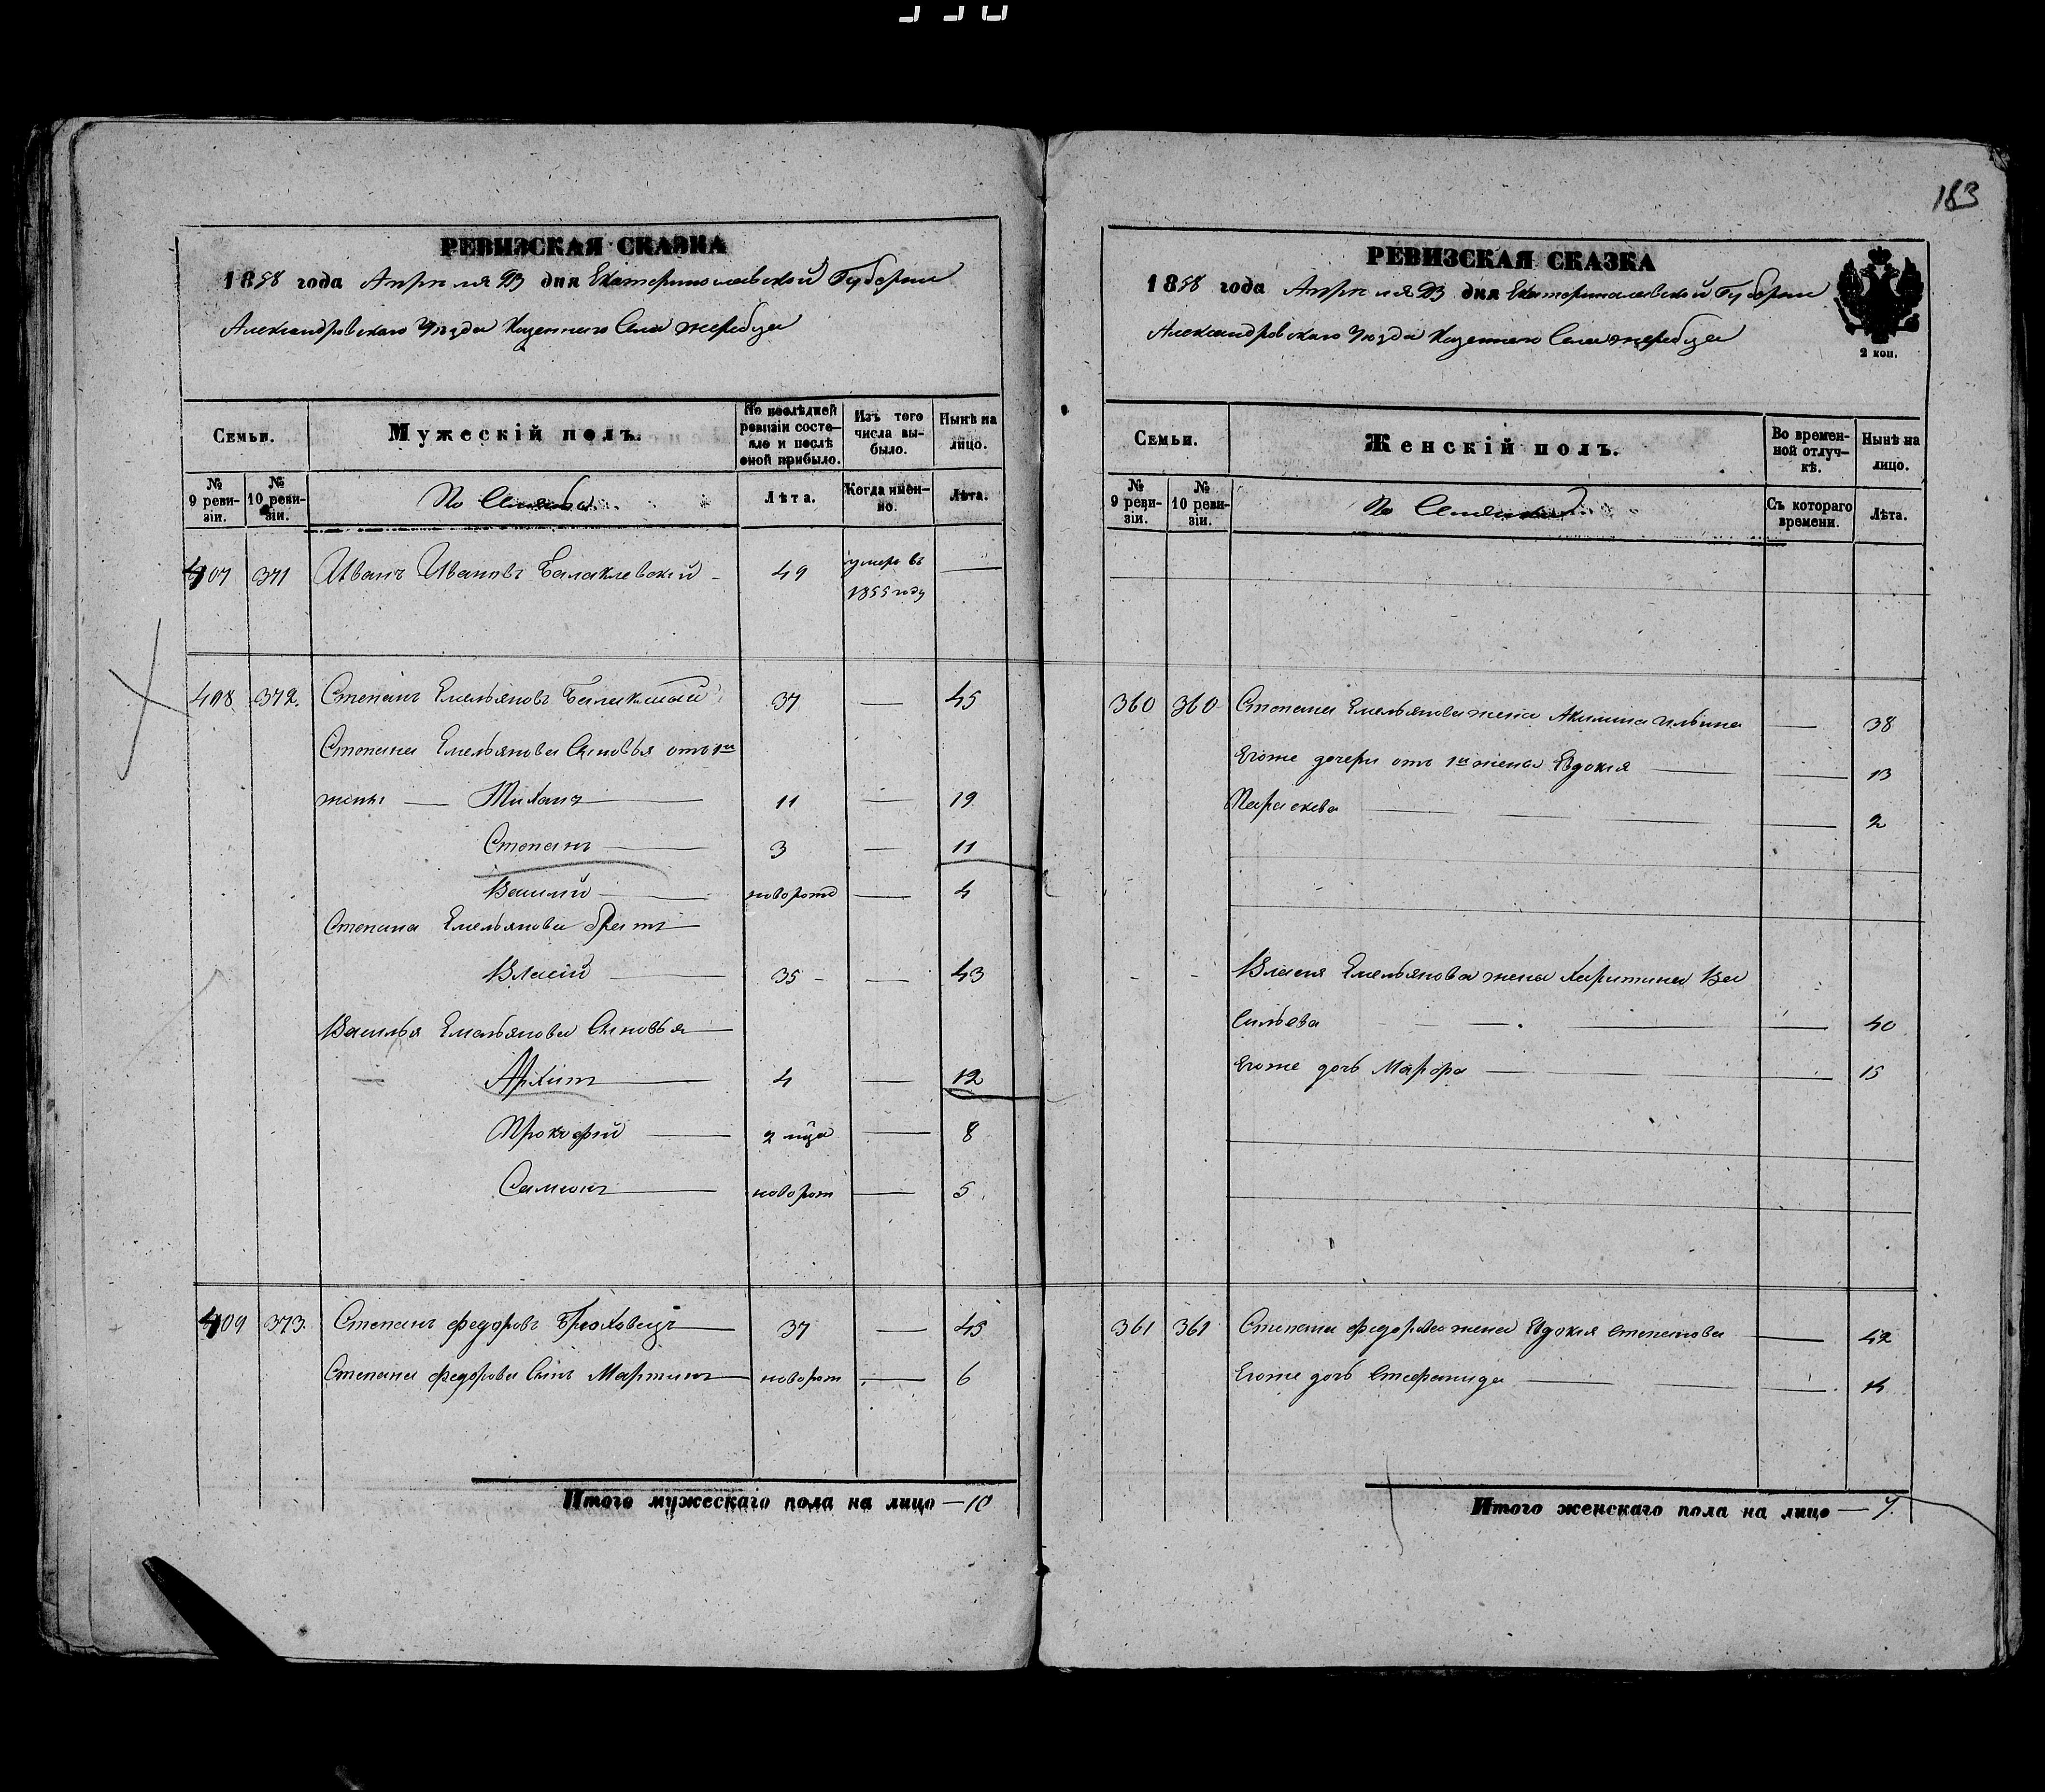 183
РЕВИЗСКАЯ СКАЗКА
1858 года Апреля 23 дня Екатеринославской Губернии
Александровскаго Уезда Казеннаго Села Жеребца
Семьи.
Мужескій полъ.
По послѣдней ревизіи состояло и послѣ оной прибыло.
Изъ того числа выбыло.
Нынѣ на лицо.
№ 9 ревизіи.
№ 10 ревизіи.
По
Лѣта.
Когда именно.
Лѣта.
407 371 Иванъ Ивановъ Балаклевскій 49 умеръ въ 1855 году —
408 372. Степанъ Емельяновъ 37 — 45
Степана Емельянова Сыновья отъ 1й
жены — Тиханъ 11 — 19
Степанъ 3 — 11
Василий новорожд — 4
Степана Емельянова братъ
Власій 35 — 43
Василья Емельянова Сыновья
Архипъ 4 — 12
Прокофій 2 мца — 8
Самсонъ новорож — 5
409 373. Степанъ Федоровъ Бреховецъ 37 — 45
Степана Федорова Сынъ Мартинъ новорож — 6
Итого мужескаго пола на лицо — 10
РЕВИЗСКАЯ СКАЗКА
1858 года Апреля 23 дня Екатеринославской Губернии
Александровскаго Уезда Казеннаго Села Жеребца
2 коп.
Семьи.
Женскій полъ.
Во временной отлучкѣ.
Нынѣ на лицо.
№ 9 ревизіи.
№ 10 ревизіи.
По
Съ котораго времени.
Лѣта.
360 360 Степана Емельянова жена Акилина Ильина — 38
Егоже дочери отъ 1й жены Евдокия — 13
Параскева — 2
Власия Емельянова жена Харитина Ва
сильева — 40
Егоже дочь Марфа — 15
361 361 Степана Федорова жена Евдокия Степанова — 42
Егоже дочь Стефанида —
Итого женскаго пола на лицо — 7.